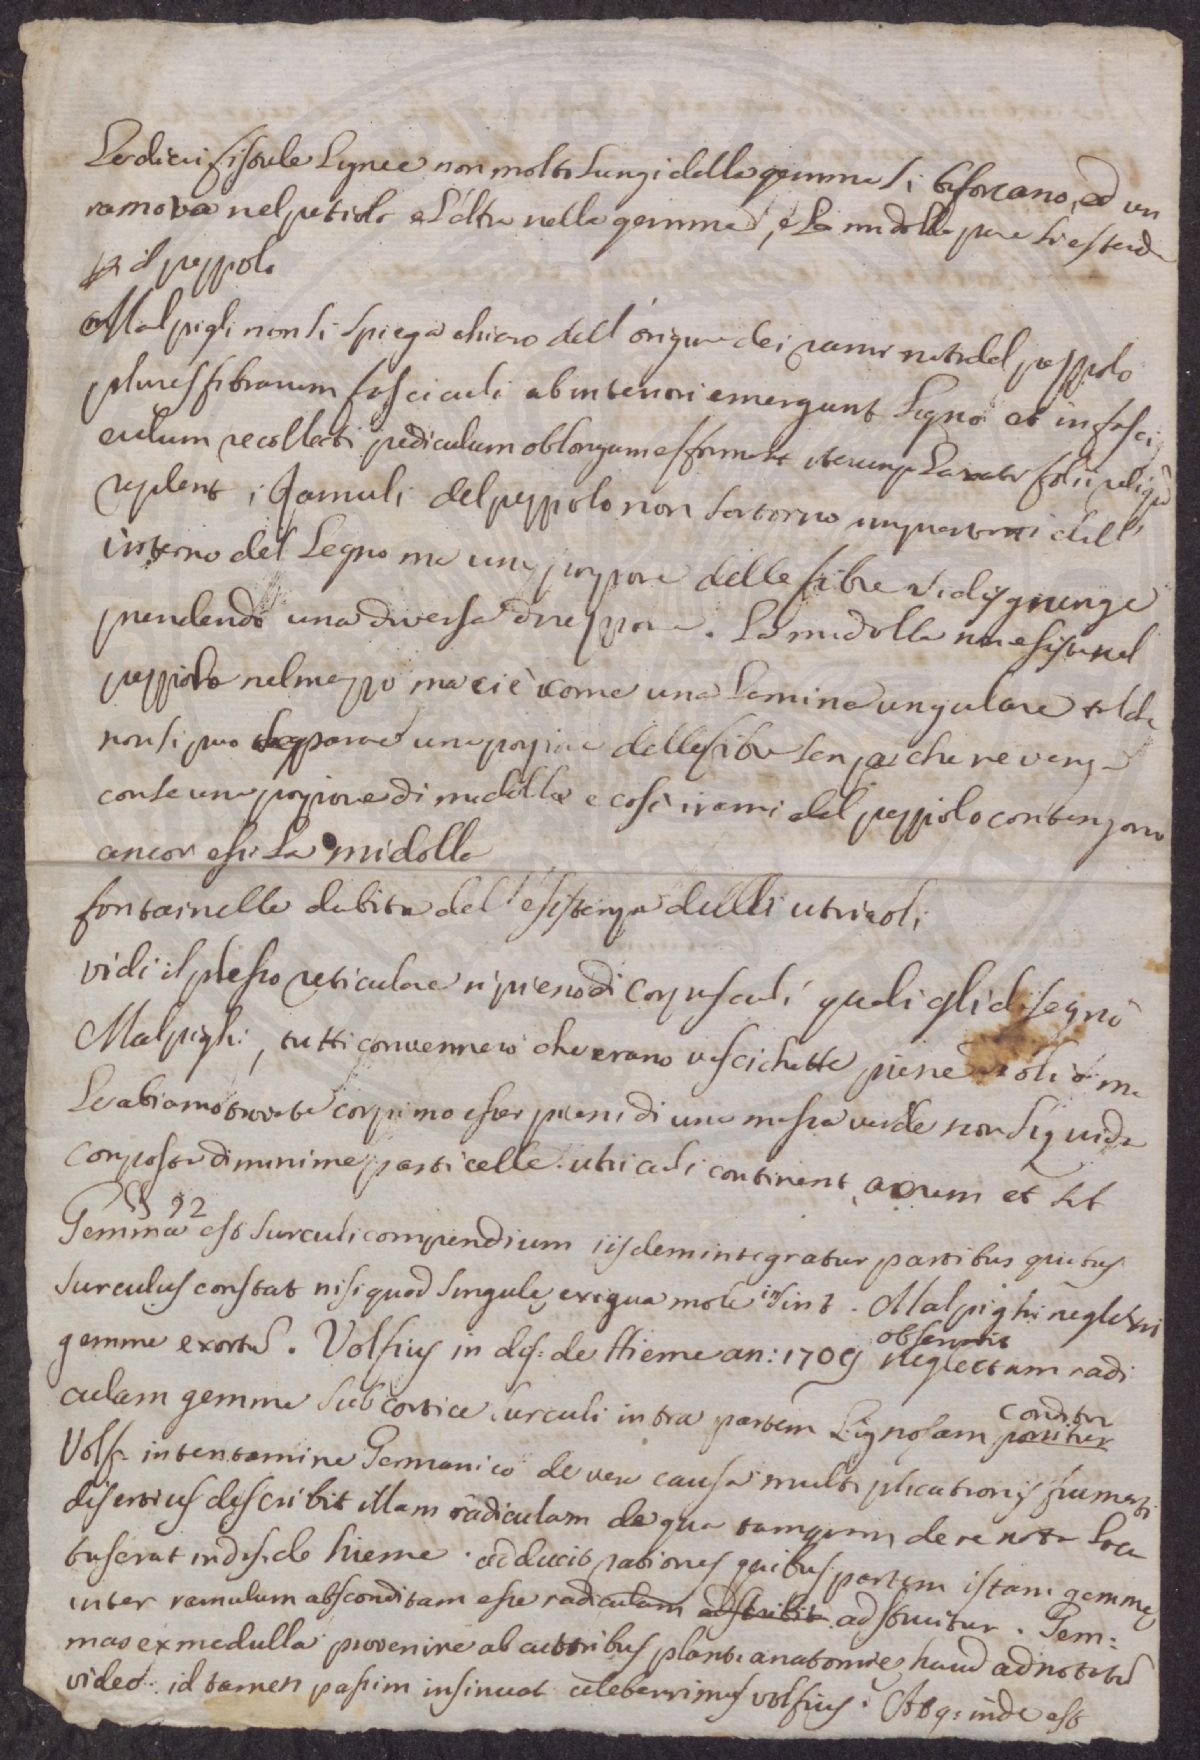 Le dieci fistule Lignee non molto lungi della gemma si biforcano, ed un
ramo va nel petiolo e l'altra nella gemma, e La midolla pare si estenda
il pezzolo
Malpigli non si spiega chiaro dell'origine dei rami nati dal pezzolo
plures fibrarum fasciculi ab interiori emergunt Ligno et in fasci
culum recollecti pediculum oblongum efformant
replent i Ramuli del pezzolo non sortono dall'
interno del Legno ma una porzione delle fibre si disgiunge
prendendo una diversa direzione. La midolla non esiste nel
pezziolo nel mezzo ma ci è come una Lamina ungulare
non si puo separare una porzione delle fibre senza che ne venga
con se una porzione di midolla e così i rami del pezziolo contengono
ancor essi La midolla
fontainelle dubita dell'esistenza delli utricoli
vidi il plesso reticulare ripieno di corpusculi quali gli disegnò
Malpighi, tutti convennero che erano vescichette piene olio ma
Le abiamo trovate esser pieni di una massa verde non Liquida
composta di minime particelle. utriculi continent et
§ 92
Gemma est surculi compendium iisdem integratur partibus quibus
surculus constat nisi quod singule exigua mole insint. Malpighi neglexi
gemme exortū. Volfius in dis: de Hieme an: 1709 observavit neglectam radi
culam gemme sub cortice surculi intra partem Lignosam conditur ponitur
Volf. in tentamine Germanico de vera causa multiplicationis frumenti
disertius describit illam radiculam de qua tamquam de re nota Locu
tus erat in dis. de hieme. adducit rationes quibus partem istam gemme
inter ramulum absconditam esse radiculam adstruitur. Gem=
mas ex medulla provenire ab auctoribus plant. anatomie haud adnotatū
video. id tamen passim insinuat celeberrimus volfius. Atq: inde est